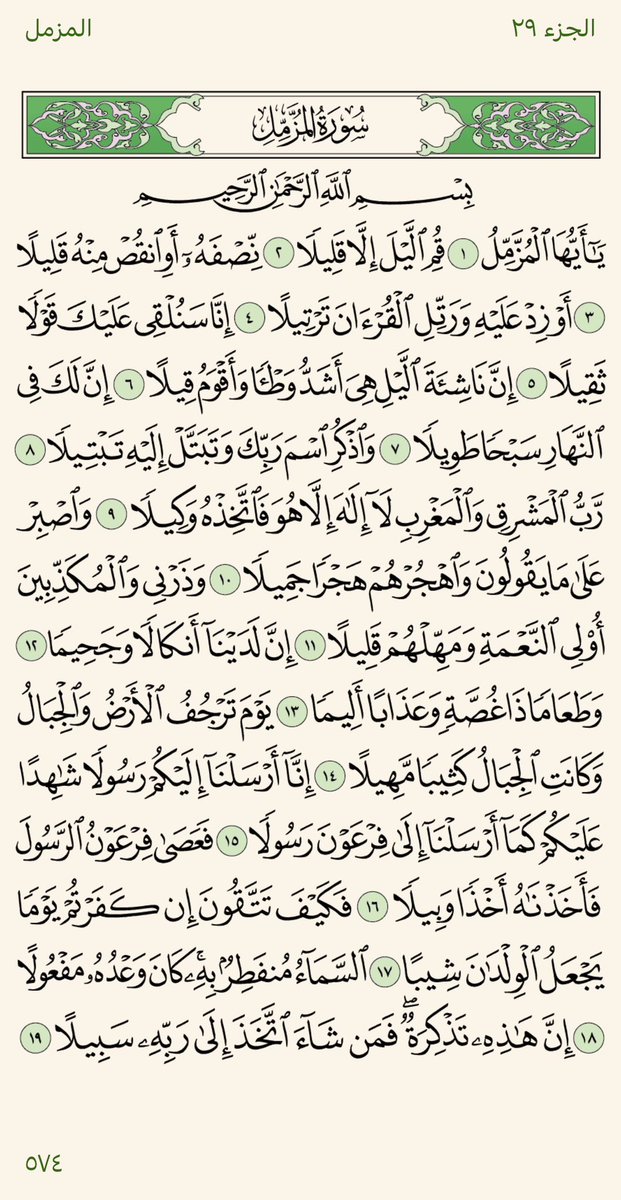 الجزء ٢٩
المزمل
سُورَةُ المُزَّمِّلِ
بِسْمِ اللَّهِ الرَّحْمَٰنِ الرَّحِيمِ
يَٰٓأَيُّهَا ٱلْمُزَّمِّلُ ١ قُمِ ٱلَّيْلَ إِلَّا قَلِيلًا ٢ نِّصْفَهُۥٓ أَوِ ٱنقُصْ مِنْهُ قَلِيلًا
٣ أَوْ زِدْ عَلَيْهِ وَرَتِّلِ ٱلْقُرْءَانَ تَرْتِيلًا ٤ إِنَّا سَنُلْقِى عَلَيْكَ قَوْلًا
ثَقِيلًا ٥ إِنَّ نَاشِئَةَ ٱلَّيْلِ هِىَ أَشَدُّ وَطْـًٔا وَأَقْوَمُ قِيلًا ٦ إِنَّ لَكَ فِى
ٱلنَّهَارِ سَبْحًا طَوِيلًا ٧ وَٱذْكُرِ ٱسْمَ رَبِّكَ وَتَبَتَّلْ إِلَيْهِ تَبْتِيلًا ٨
رَّبُّ ٱلْمَشْرِقِ وَٱلْمَغْرِبِ لَآ إِلَٰهَ إِلَّا هُوَ فَٱتَّخِذْهُ وَكِيلًا ٩ وَٱصْبِرْ
عَلَىٰ مَا يَقُولُونَ وَٱهْجُرْهُمْ هَجْرًا جَمِيلًا ١٠ وَذَرْنِى وَٱلْمُكَذِّبِينَ
أُو۟لِى ٱلنَّعْمَةِ وَمَهِّلْهُمْ قَلِيلًا ١١ إِنَّ لَدَيْنَآ أَنكَالًا وَجَحِيمًا ١٢
وَطَعَامًا ذَا غُصَّةٍ وَعَذَابًا أَلِيمًا ١٣ يَوْمَ تَرْجُفُ ٱلْأَرْضُ وَٱلْجِبَالُ
وَكَانَتِ ٱلْجِبَالُ كَثِيبًا مَّهِيلًا ١٤ إِنَّآ أَرْسَلْنَآ إِلَيْكُمْ رَسُولًا شَٰهِدًا
عَلَيْكُمْ كَمَآ أَرْسَلْنَآ إِلَىٰ فِرْعَوْنَ رَسُولًا ١٥ فَعَصَىٰ فِرْعَوْنُ ٱلرَّسُولَ
فَأَخَذْنَٰهُ أَخْذًا وَبِيلًا ١٦ فَكَيْفَ تَتَّقُونَ إِن كَفَرْتُمْ يَوْمًا
يَجْعَلُ ٱلْوِلْدَٰنَ شِيبًا ١٧ ٱلسَّمَآءُ مُنفَطِرٌۢ بِهِۦۚ كَانَ وَعْدُهُۥ مَفْعُولًا
١٨ إِنَّ هَٰذِهِۦ تَذْكِرَةٌۖ فَمَن شَآءَ ٱتَّخَذَ إِلَىٰ رَبِّهِۦ سَبِيلًا ١٩
٥٧٤